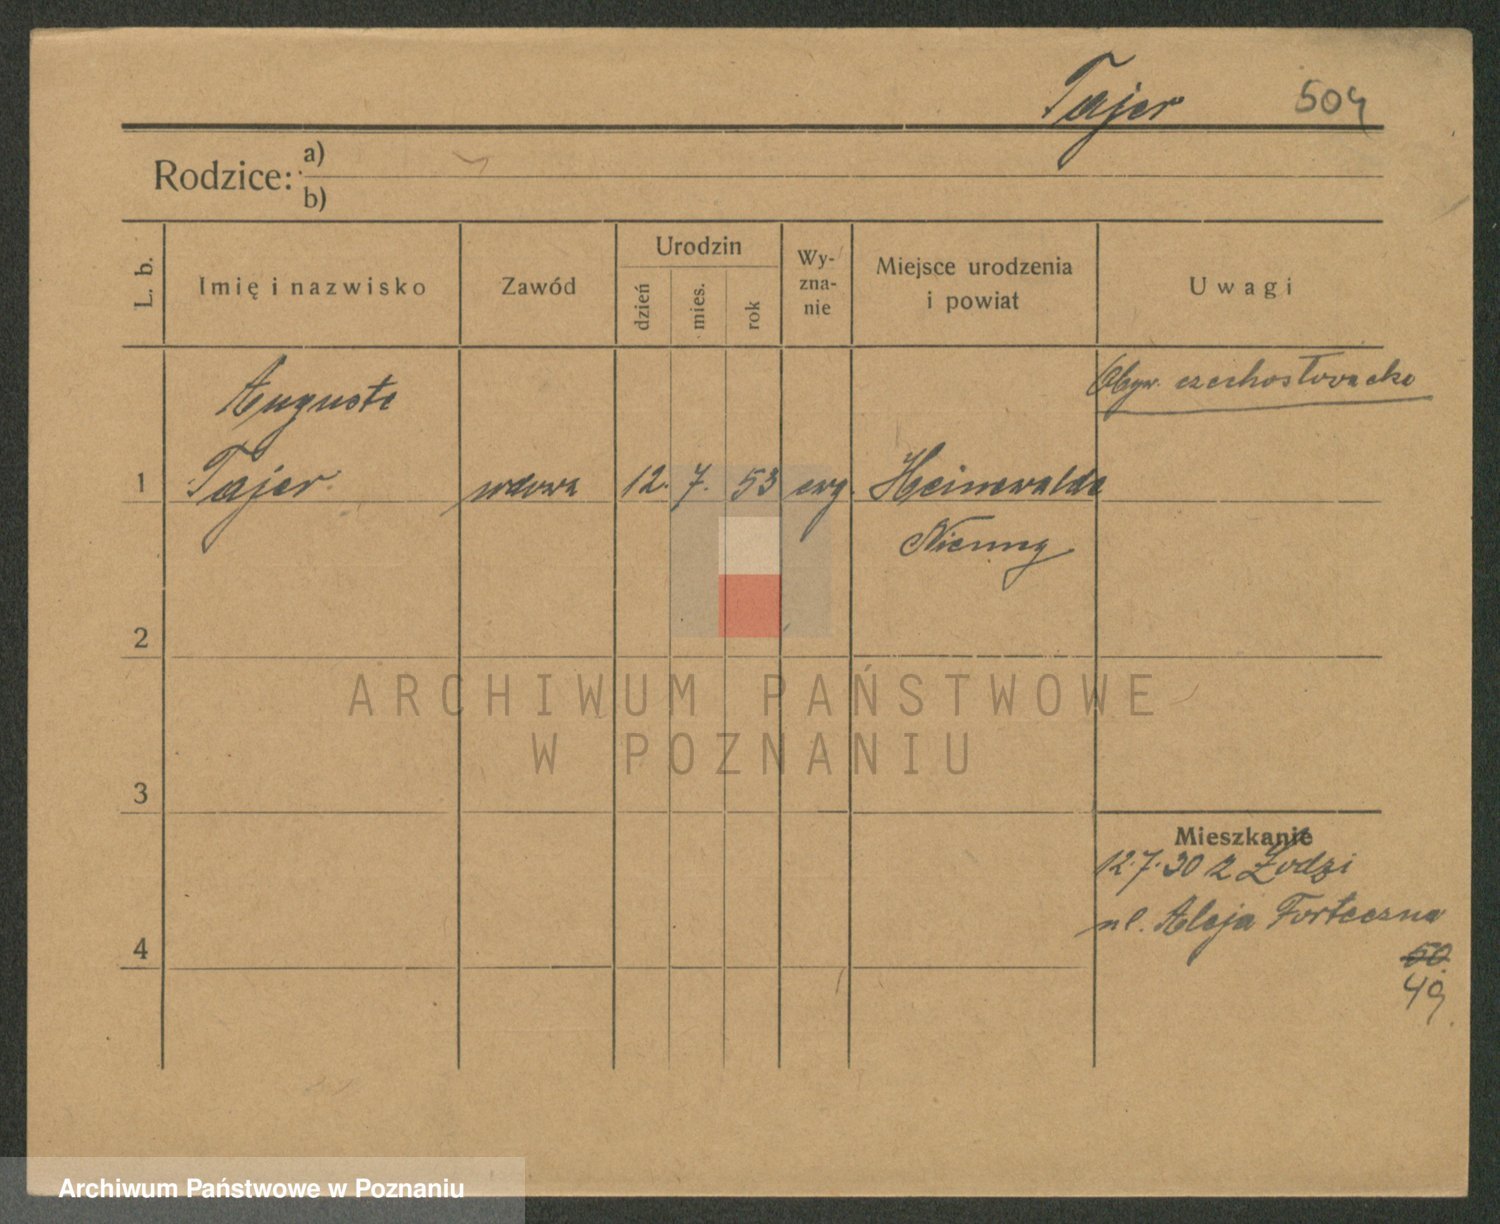 Tajer 504
Rodzice: a)
b)
L. b.
Imię i nazwisko
Zawód
Urodzin
dzień
mies.
rok
Wy-
zna-
nie
Miejsce urodzenia
i powiat
Uwagi
Auguste
Obyw. czechosłovacka
1 Tajer wdowa 12. 7. 53 ewg. Heinewalde
Niemcy
2
ARCHIWUM PAŃSTWOWE
W POZNANIU
3
Mieszkanie
12.7.30 z Łodzi
ul. Aleja Forteczna
4
50
49
Archiwum Państwowe w Poznaniu